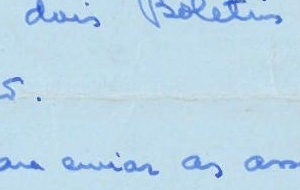 dois Boletins
5.
para enviar as ass